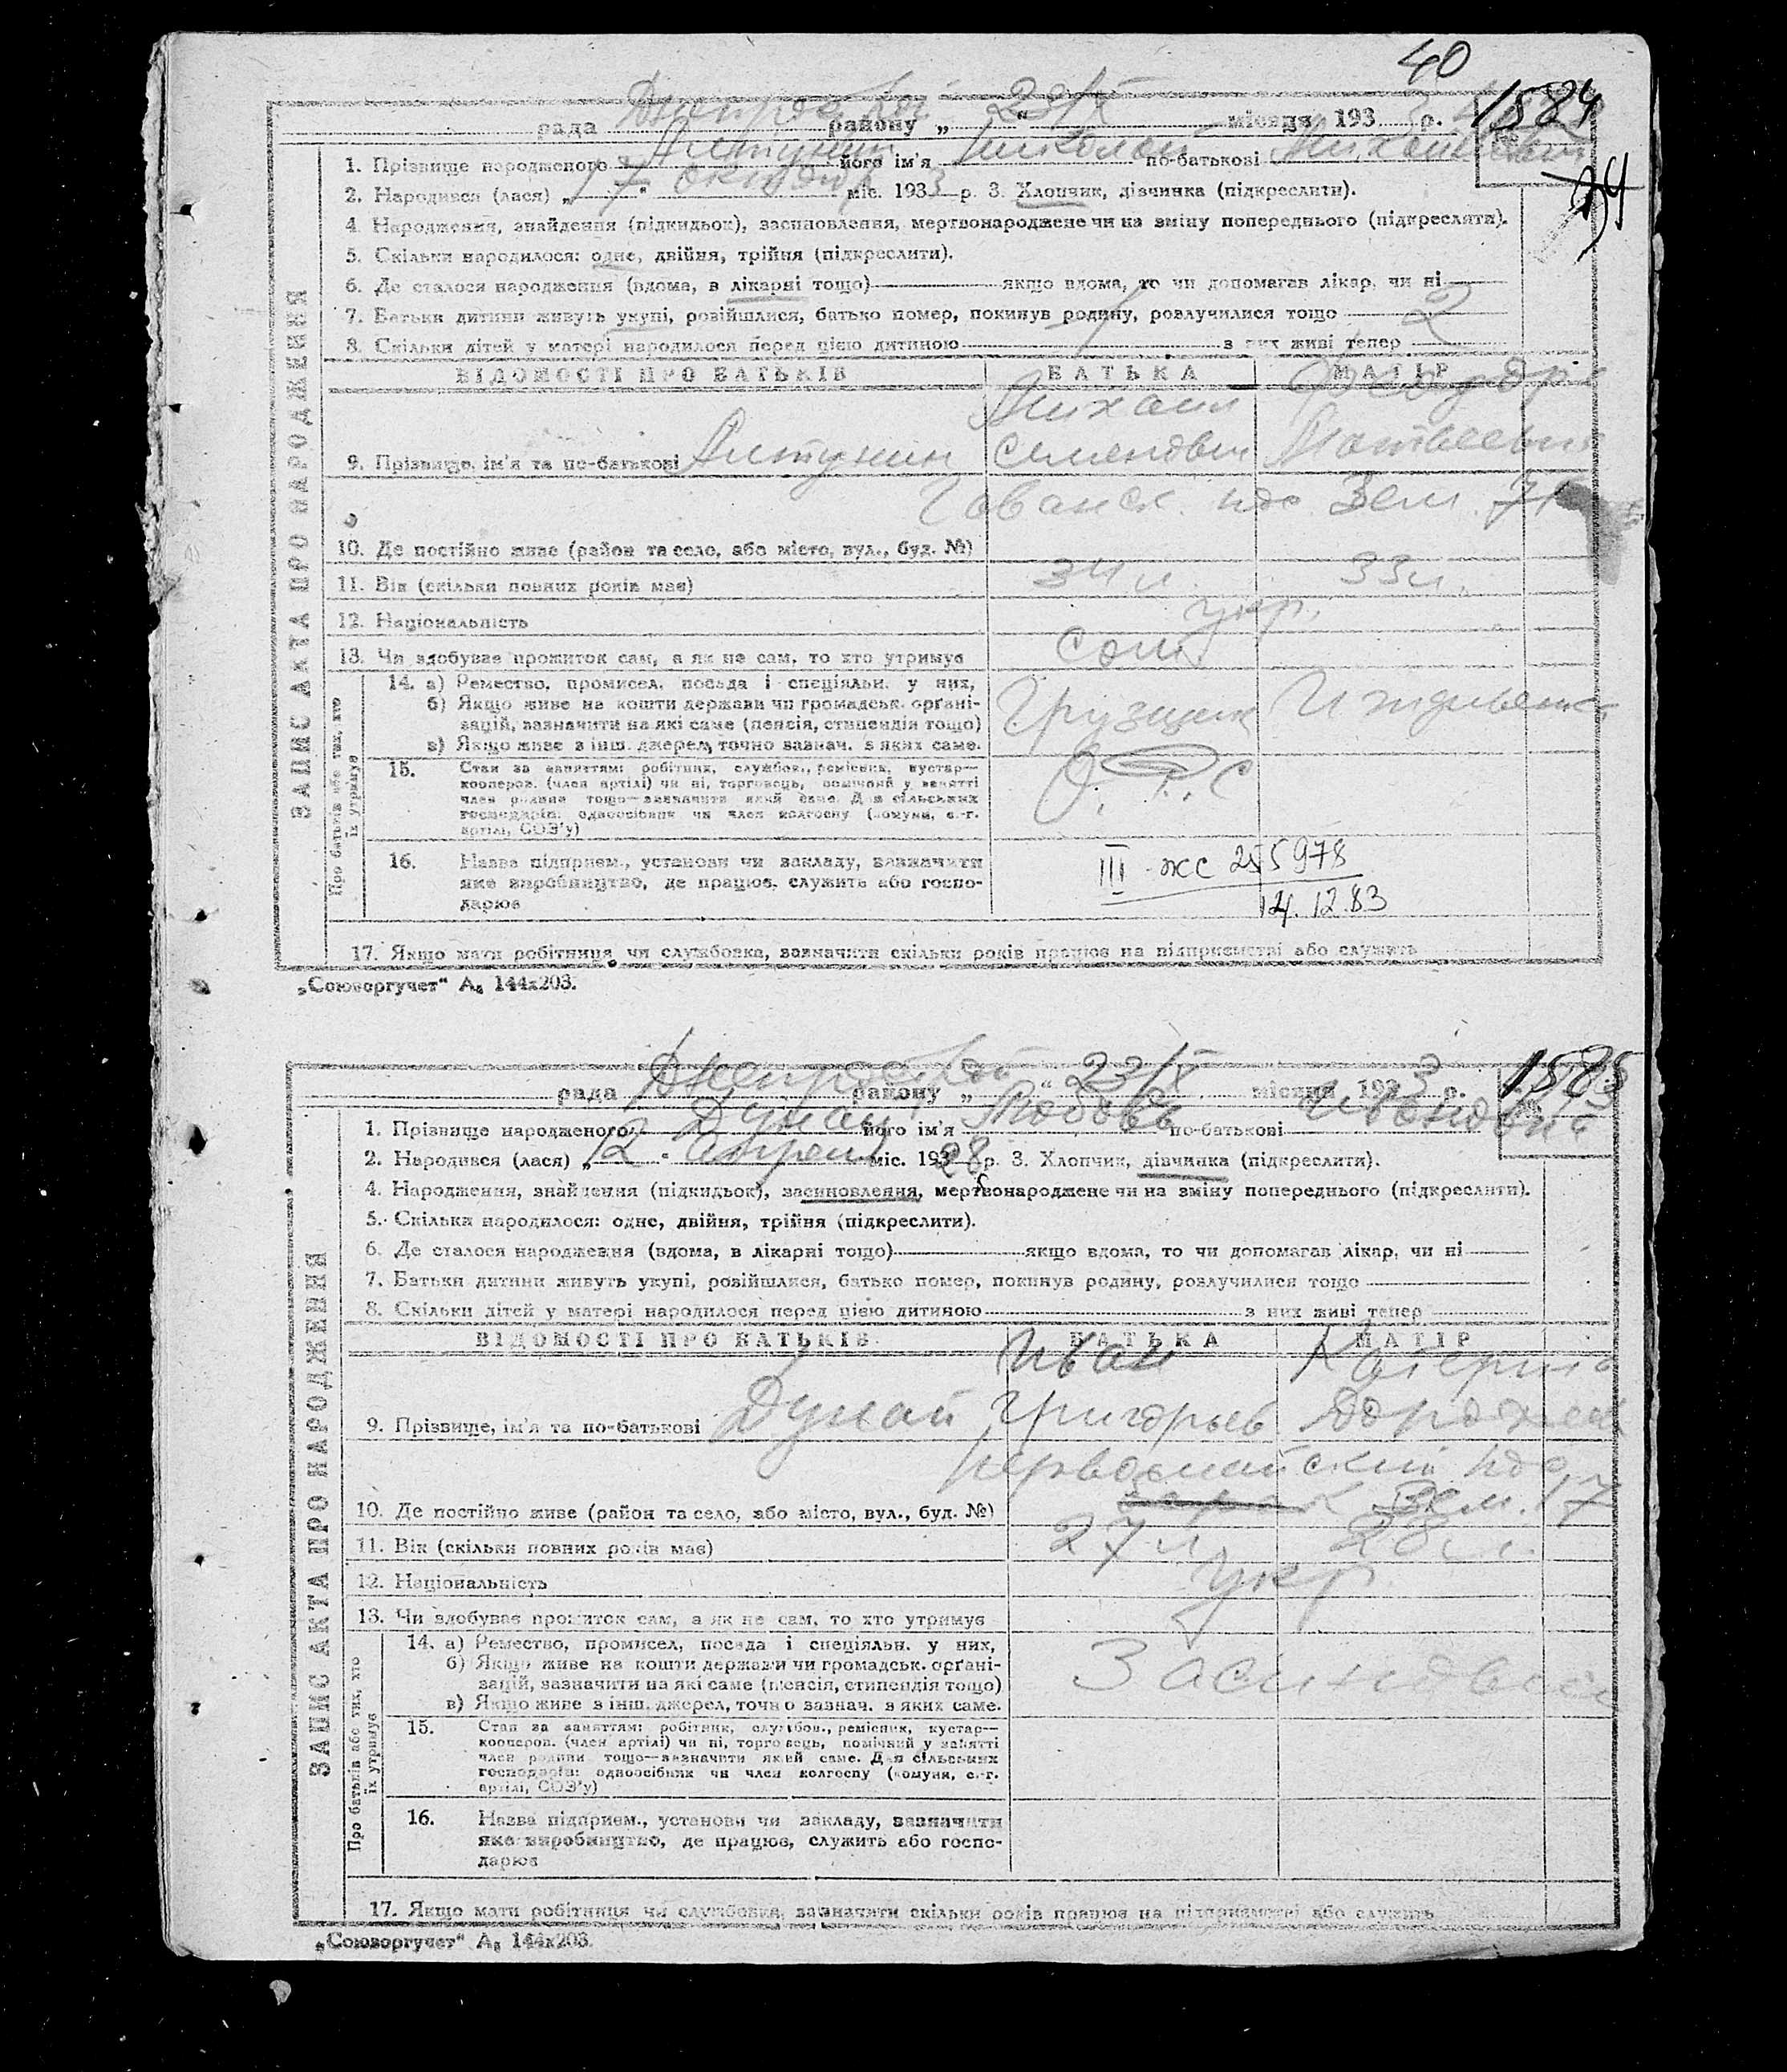 40
рада району „ 23/X “ місяця 193 3 р. 1584
1. Прізвище народженого його ім'я Николай по-батькові Михайлович
2. Народився (лася) „ 17 “ октября міс. 193 3 р. 3. Хлопчик, дівчинка (підкреслити).
4. Народження, знайдення (підкидьок), засиновлення, мертвонароджене чи на зміну попереднього (підкреслити).
5. Скільки народилося: одне, двійня, трійня (підкреслити).
6. Де сталося народження (вдома, в лікарні тощо) якщо вдома, то чи допомагав лікар, чи ні
7. Батьки дитини живуть укупі, розійшлися, батько помер, покинув родину, розлучилися тощо
8. Скільки дітей у матері народилося перед цією дитиною з них живі тепер 2
ЗАПИС АКТА ПРО НАРОДЖЕННЯ
ВІДОМОСТІ ПРО БАТЬКІВ БАТЬКА МАТІР
Михаил
9. Прізвище, ім'я та по-батькові Семенович Матвеевна
Зем. 71
10. Де постійно живе (район та село, або місто, вул., буд. №)
11. Вік (скільки повних років має) 34 л. 33 л.
12. Національність укр.
13. Чи здобуває прожиток сам, а як не сам, то хто утримує сам
Про батьків або тих, хто їх утримує
14. а) Ремество, промисел, посада і спеціяльн. у них,
б) Якщо живе на кошти держави чи громадськ. орґані-
зацій, зазначити на які саме (пенсія, стипендія тощо) Грузщик Иждивенка
в) Якщо живе з інш. джерел, точно зазнач. з яких саме.
15. Стан за заняттям: робітник, службов., ремісник, кустар—
кооперов. (член артілі) чи ні, торговець, помічний у занятті
член родини тощо—зазначити який саме. Для сільських
господарів: одноосібник чи член колгоспу (комуни, с.-г.
артілі, СОЗ'у)
16. Назва підприєм., установи чи закладу, зазначити
яке виробництво, де працює, служить або госпо-
дарює
III - жс 255978
14.12.83
17. Якщо мати робітниця чи службовка, зазначити скільки років працює на підприємстві або служить
„Союзоргучет“ А₅ 144x203.
рада району „ “ 23/X місяця 193 3 р. 1585
1. Прізвище народженого Дунай його ім'я Любовь по-батькові Ивановна
2. Народився (лася) „ 12 “ апреля міс. 193 28 р. 3. Хлопчик, дівчинка (підкреслити).
4. Народження, знайдення (підкидьок), засиновлення, мертвонароджене чи на зміну попереднього (підкреслити).
5. Скільки народилося: одне, двійня, трійня (підкреслити).
6. Де сталося народження (вдома, в лікарні тощо) якщо вдома, то чи допомагав лікар, чи ні
7. Батьки дитини живуть укупі, розійшлися, батько помер, покинув родину, розлучилися тощо
8. Скільки дітей у матері народилося перед цією дитиною з них живі тепер
ЗАПИС АКТА ПРО НАРОДЖЕННЯ
ВІДОМОСТІ ПРО БАТЬКІВ БАТЬКА МАТІР
Иван Катерина
9. Прізвище, ім'я та по-батькові Дунай Григорьев
Первомайский
10. Де постійно живе (район та село, або місто, вул., буд. №) Зем. 17
11. Вік (скільки повних років має) 27 л. 28 л.
12. Національність укр
13. Чи здобуває прожиток сам, а як не сам, то хто утримує
Про батьків або тих, хто їх утримує
14. а) Ремество, промисел, посада і спеціяльн. у них,
б) Якщо живе на кошти держави чи громадськ. орґані-
зацій, зазначити на які саме (пенсія, стипендія тощо)
в) Якщо живе з інш. джерел, точно зазнач. з яких саме.
15. Стан за заняттям: робітник, службов., ремісник, кустар—
кооперов. (член артілі) чи ні, торговець, помічний у занятті
член родини тощо—зазначити який саме. Для сільських
господарів: одноосібник чи член колгоспу (комуни, с.-г.
артілі, СОЗ'у)
16. Назва підприєм., установи чи закладу, зазначити
яке виробництво, де працює, служить або госпо-
дарює
17. Якщо мати робітниця чи службовка, зазначити скільки років працює на підприємстві або служить
„Союзоргучет“ А₅ 144x203.